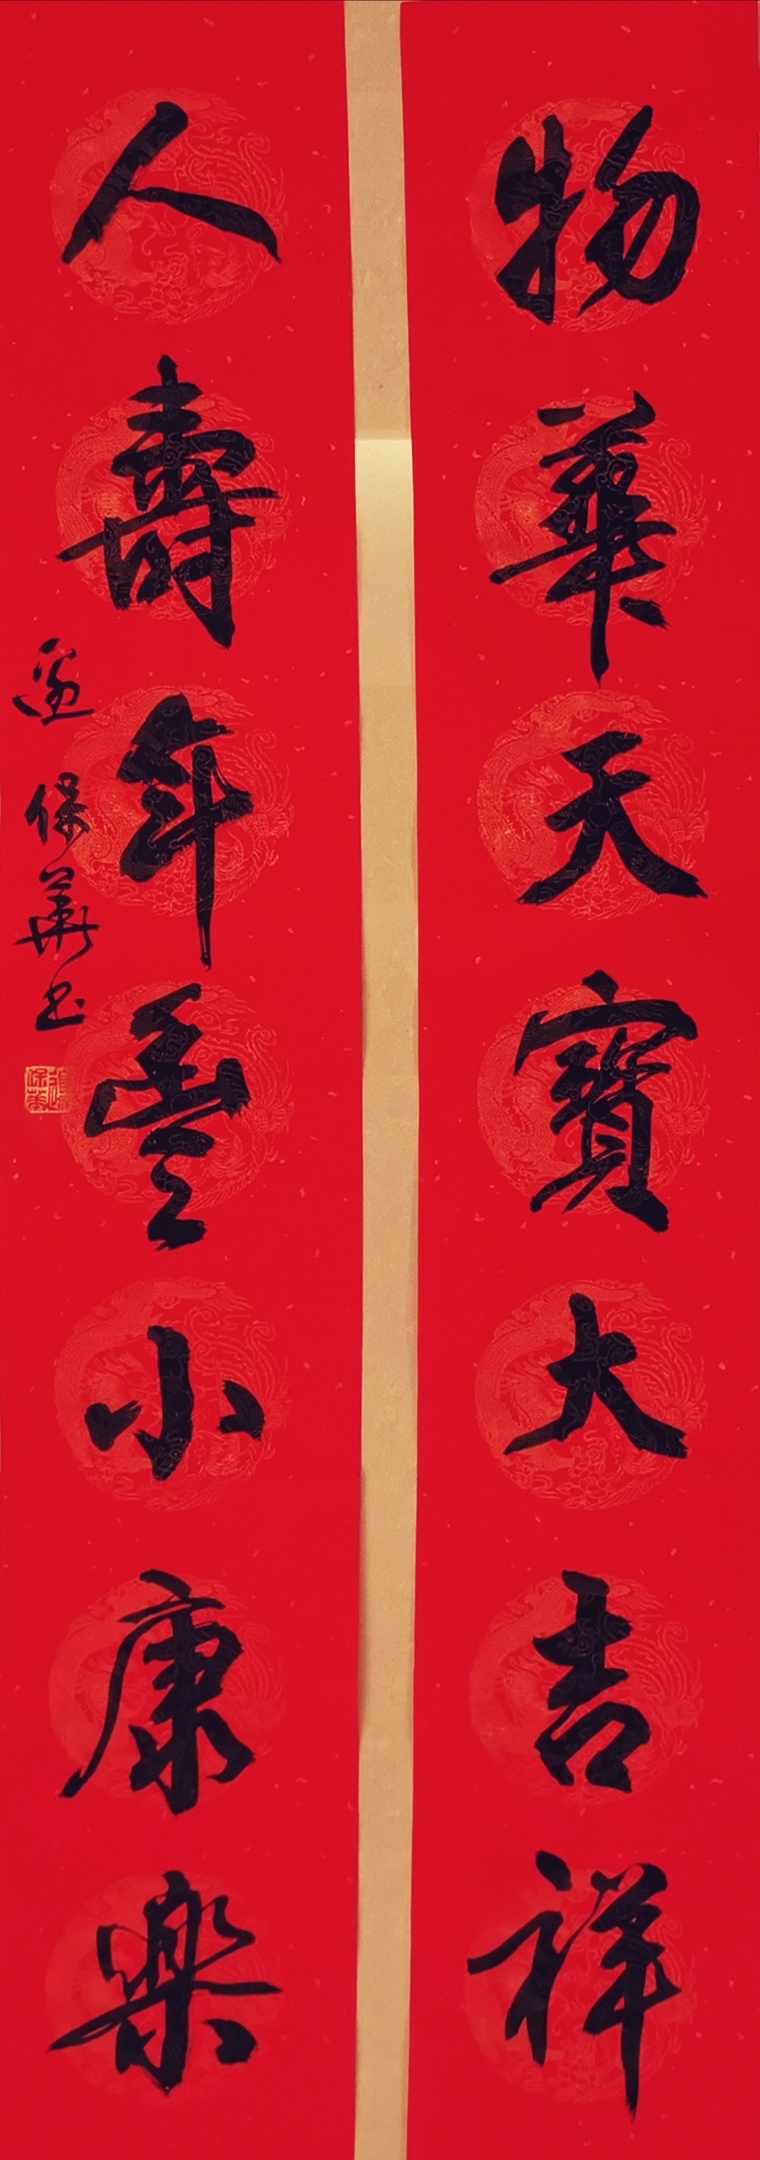 物華天寶大吉祥
人壽年豐小康樂
保華书